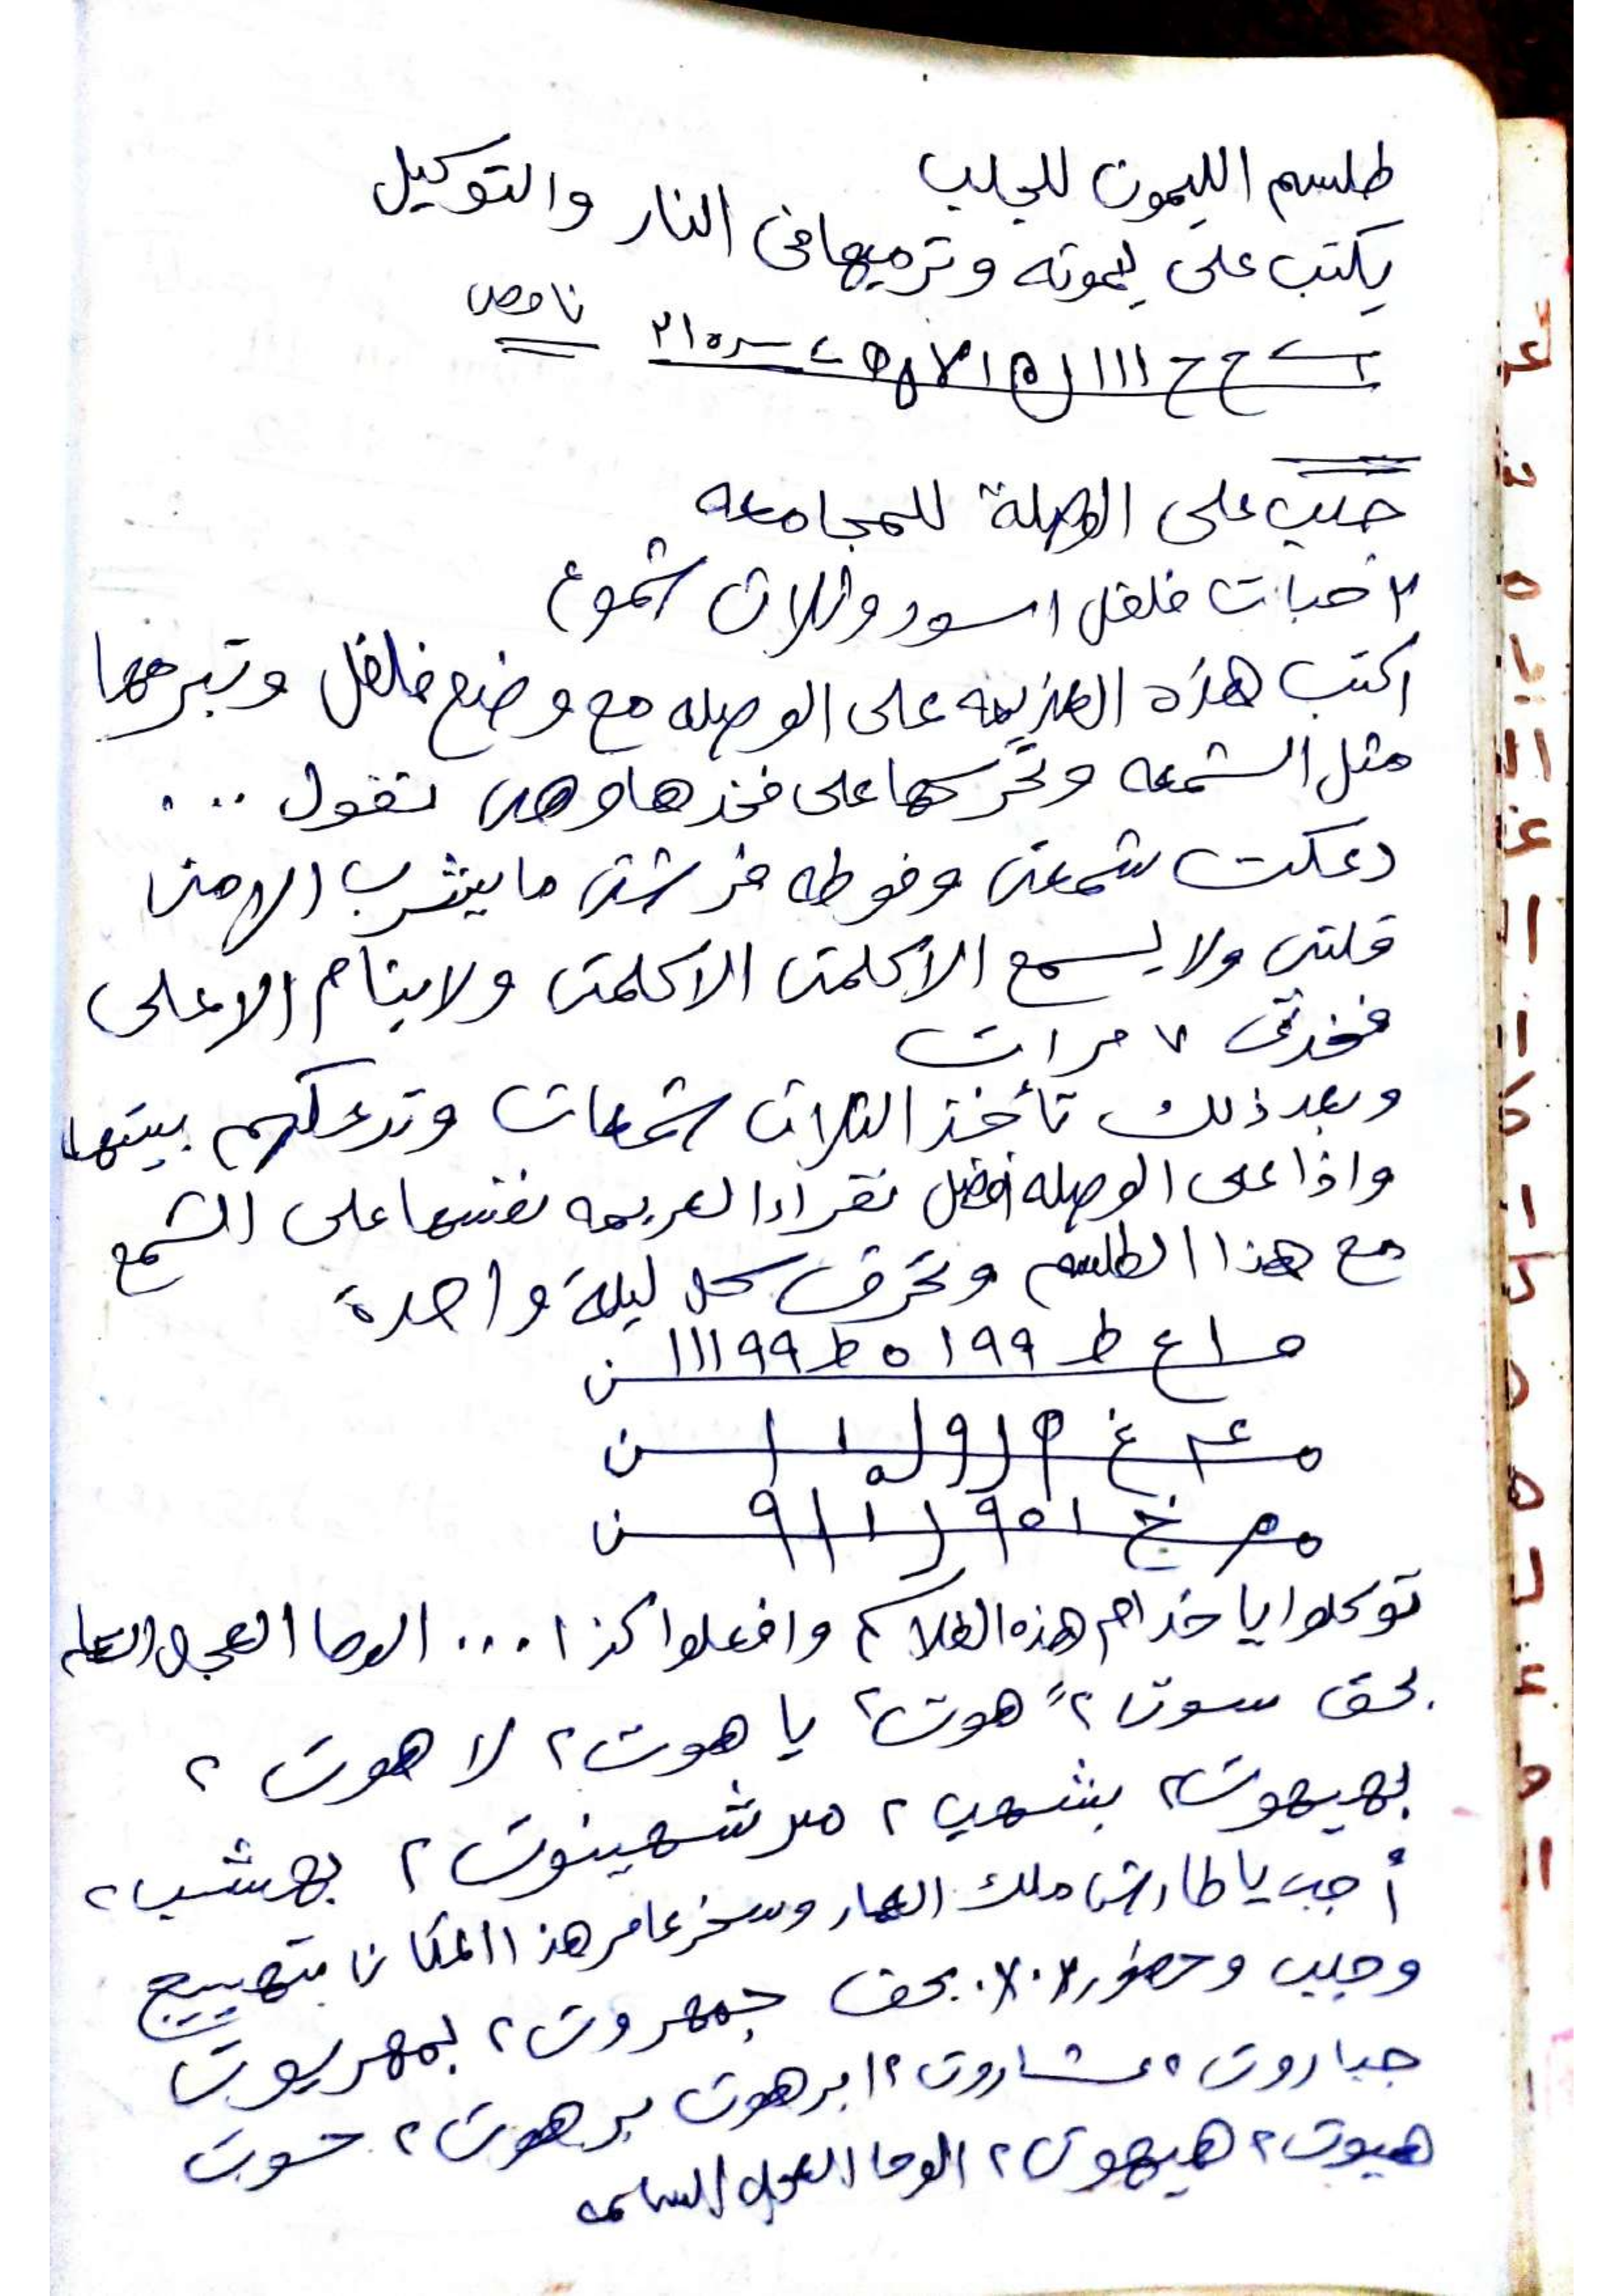 طلسم الليمون للجلب
يكتب على ليمونه وترميها فى النار والتوكيل
ناقص
جلب على الوصلة للمجامعه
٣ حبات فلفل اسود وثلاث شموع
اكتب هذه العزيمه على الوصله مع وضع فلفل وتبرمها
مثل الشمعه وتحركها على فخذها وهى تقول ...
دعكت شمعتى وفوطه فرشتى ما يشرب الا من
قلتى ولا يسمع الا كلمتى الا كلمتى ولا ينام الا على
فخدتى ٧ مرات
وبعد ذلك تأخذ الثلاث شمعات وتدعكهم بيتها
واذا على الوصله افضل تقراء العزيمه نفسها على الشمع
مع هذا الطلسم وتحرق كل ليلة واحدة
ما ع ط ١٩٩ ٥ ط ١١١٩٩ ن
توكلوا يا خدام هذه الطلاسم وافعلوا كذا ... الوحا العجل الساعه
بحق سوت ٢ هوت ٢ يا هوت ٢ لا هوت ٢
بهيهوت ٢ بشهب ٢ مر شهينوت ٢ بهشب ٢
أجب يا طارش ملك العمار وسخر عامر هذا المكان بتهييج
وجلب وحضور بحق جمهروت ٢ بمهريوت
جباروت ٢ عشاروت ٢ ابرهوت برهوت ٢ حوت
هيوت ٢ هيهوت ٢ الوحا العجل الساعه